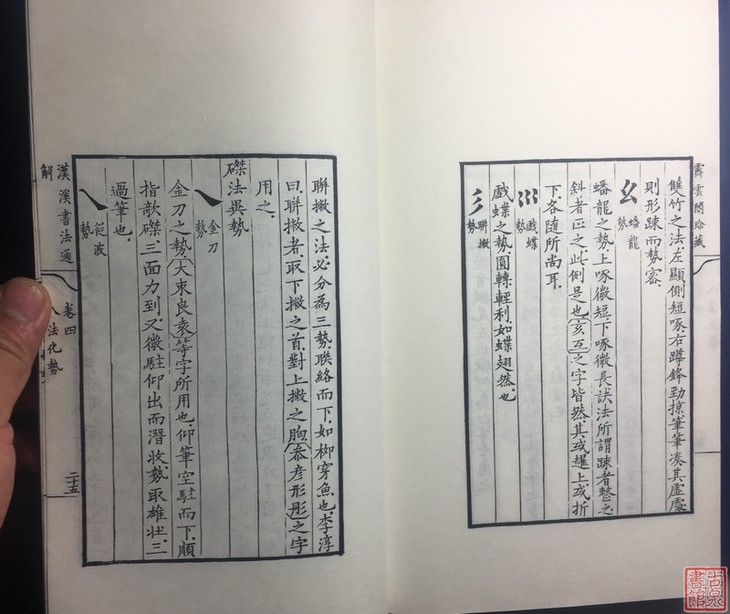 霽雲閣珍藏
雙竹之法左顯側短啄右蹲鋒勁掠筆筆湊其虛處
則形疎而勢密
蟠龍勢
蟠龍之勢上啄微短下啄微長訣法所謂疎者整之
斜者正之此例是也亥互之字皆然其或趯上或折
下各隨所尚耳
戲蝶勢
戲蝶之勢圓轉輕利如蝶翅然也
聯撇勢
聯撇之法必分為三勢聯絡而下如柳穿魚也李淳
曰聯撇者取下撇之首對上撇之胸叅彦形彤之字
用之
磔法異勢
金刀勢
金刀之勢大東良褱等字所用也仰筆空駐而下順
指欹磔三面力到又微駐仰出而潛收勢取雄壯三
過筆也
從波勢
漢溪書法通解
卷四
八法化勢
二十五
古泉書館